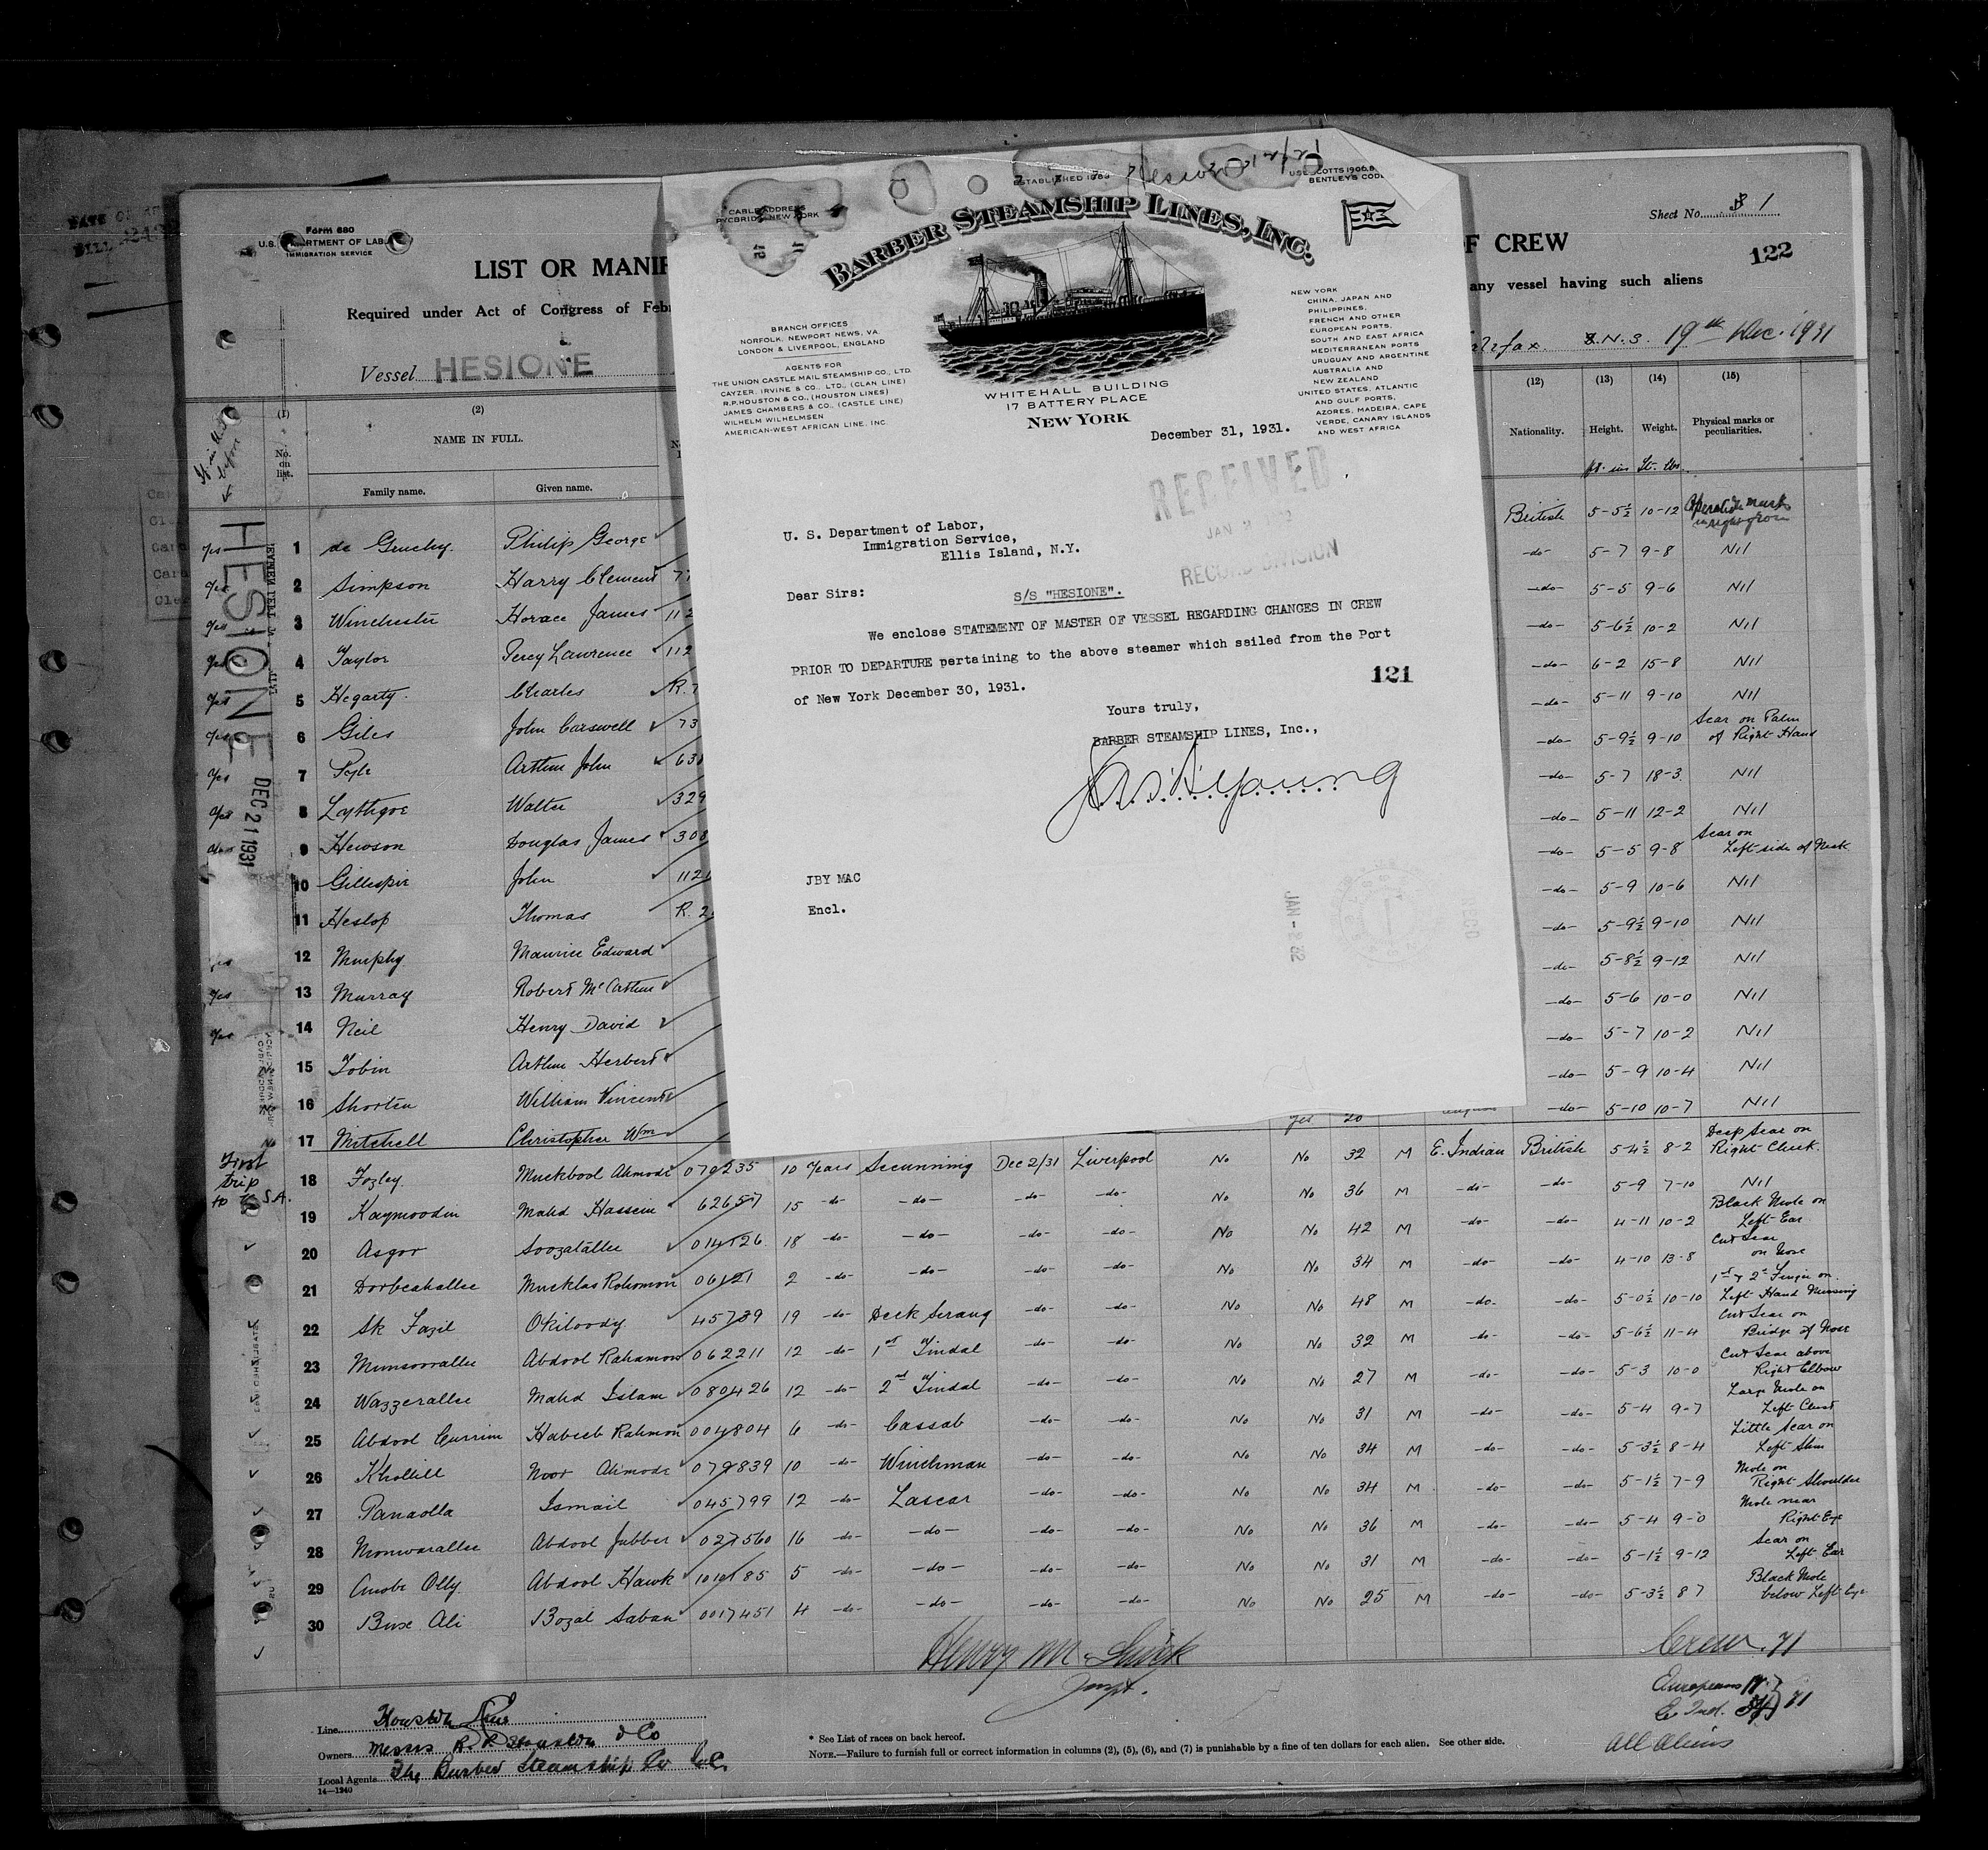 Form 680
U.S. DEPARTMENT OF LABOR
IMMIGRATION SERVICE
LIST OR MANIF
Required under Act of Congress of Feb
Vessel HESIONE
(1)
No. on list.
(2)
NAME IN FULL.
Family name.
Given name.
ESTABLISHED 1883
Hesione 12/21
CABLE ADDRESS
PYCBRID NEW YORK
USE SCOTTS 1906,
BENTLEY'S CODE
BARBER STEAMSHIP LINES, INC.
BRANCH OFFICES
NORFOLK, NEWPORT NEWS, VA.
LONDON & LIVERPOOL, ENGLAND
AGENTS FOR
THE UNION CASTLE MAIL STEAMSHIP CO., LTD.
CAYZER, IRVINE & CO., LTD., (CLAN LINE)
R.P. HOUSTON & CO., (HOUSTON LINES)
JAMES CHAMBERS & CO., (CASTLE LINE)
WILHELM WILHELMSEN
AMERICAN-WEST AFRICAN LINE, INC.
NEW YORK
CHINA, JAPAN AND
PHILIPPINES,
FRENCH AND OTHER
EUROPEAN PORTS,
SOUTH AND EAST AFRICA
MEDITERRANEAN PORTS
URUGUAY AND ARGENTINE
AUSTRALIA AND
NEW ZEALAND
UNITED STATES, ATLANTIC
AND GULF PORTS,
AZORES, MADEIRA, CAPE
VERDE, CANARY ISLANDS
AND WEST AFRICA
WHITEHALL BUILDING
17 BATTERY PLACE
NEW YORK
December 31, 1931.
RECEIVED
JAN 2
RECORD DIVISION
U. S. Department of Labor,
Immigration Service,
Ellis Island, N.Y.
Dear Sirs:
S/S "HESIONE".
We enclose STATEMENT OF MASTER OF VESSEL REGARDING CHANGES IN CREW
PRIOR TO DEPARTURE pertaining to the above steamer which sailed from the Port
of New York December 30, 1931.
121
Yours truly,
BARBER STEAMSHIP LINES, Inc.,
JBY MAC
Encl.
JAN - 2 32
Sheet No. 1
OF CREW
122
any vessel having such aliens
Halifax. N.S. 19th Dec. 1931
(12) (13) (14) (15)
Nationality. Height. Weight. Physical marks or peculiarities.
ft. ins St. lbs.
HESIONE DEC 21 1931
Yes 1 de Gruchy. Philip George British 5-5½ 10-12 Operation mark in right groin
Yes 2 Simpson Harry Clement 77 -do- 5-7 9-8 Nil
Yes 3 Winchester Horace James 112 -do- 5-5 9-6 Nil
Yes 4 Taylor Percy Lawrence 112 -do- 5-6½ 10-2 Nil
Yes 5 Hegarty. Charles R. 7 -do- 6-2 15-8 Nil
Yes 6 Giles John Carswell 73 -do- 5-11 9-10 Nil
Yes 7 Pyle Arthur John 631 -do- 5-9½ 9-10 Scar on Palm of Right Hand
Yes 8 Lathgoe Walter 329 -do- 5-7 18-3 Nil
9 Hewson Douglas James 308 -do- 5-11 12-2 Nil
10 Gillespie John 1121 -do- 5-5 9-8 Scar on Left side of Neck
11 Heslop Thomas R. 2 -do- 5-9 10-6 Nil
Yes 12 Murphy Maurice Edward -do- 5-9½ 9-10 Nil
Yes 13 Murray Robert McArthur -do- 5-8½ 9-12 Nil
Yes 14 Neil Henry David -do- 5-6 10-0 Nil
No 15 Tobin Arthur Herbert -do- 5-7 10-2 Nil
No 16 Shorten William Vincent -do- 5-9 10-4 Nil
No 17 Mitchell Christopher Wm Yes 20 -do- 5-10 10-7 Nil
First trip to U.S.A.
18 Fozley. Muckbool Ahmode 079235 10 Years Secunning Dec 2/31 Liverpool No No 32 M E. Indian British 5-4½ 8-2 Deep Scar on Right Cheek.
19 Kaymooden Mahd Hassein 62657 15 -do- -do- -do- -do- No No 36 M -do- -do- 5-9 7-10 Nil
20 Asgor Soozatallee 014126 18 -do- -do- -do- -do- No No 42 M -do- -do- 4-11 10-2 Black Mole on Left Ear
21 Dorbeahallee Mucklas Rohomon 06121 2 -do- -do- -do- -do- No No 34 M -do- -do- 4-10 13-8 Cut Scar on Nose
22 Sk Fazil Okiloody 45739 19 -do- Deck Serang -do- -do- No No 48 M -do- -do- 5-0½ 10-10 1st & 2nd Finger on Left Hand Missing
23 Munsoorallee Abdool Rahamon 062211 12 -do- 1st Tindal -do- -do- No No 32 M -do- -do- 5-6½ 11-4 Cut Scar on Bridge of Nose
24 Wazzerallee Mahd Islam 080426 12 -do- 2nd Tindal -do- -do- No No 27 M -do- -do- 5-3 10-0 Cut Scar above Right Elbow
25 Abdool Currim Habeeb Rahmon 004804 6 -do- Cassab -do- -do- No No 31 M -do- -do- 5-4 9-7 Large Mole on Left Chest
26 Kholill Noor Ahmode 079839 10 -do- Winchman -do- -do- No No 34 M -do- -do- 5-3½ 8-4 Little Scar on Left Shin
27 Panaolla Ismail 045799 12 -do- Lascar -do- -do- No No 34 M -do- -do- 5-1½ 7-9 Mole on Right Shoulder
28 Monwarallee Abdool Jubber 027560 16 -do- -do- -do- -do- No No 36 M -do- -do- 5-4 9-0 Mole near Right Eye
29 Amobe Olly. Abdool Hawk 101985 5 -do- -do- -do- -do- No No 31 M -do- -do- 5-1½ 9-12 Scar on Left Ear
30 Buxe Ali Bozal Saban 0017451 4 -do- -do- -do- -do- No No 25 M -do- -do- 5-3½ 8 7 Black Mole below Left Eye
Crew. 71
Europeans 17
E. Ind. 54 71
All aliens
Line Houston Line
Owners Messrs R. P. Houston & Co
Local Agents The Barber Steamship Co Inc.
14—1240
* See List of races on back hereof.
NOTE.—Failure to furnish full or correct information in columns (2), (5), (6), and (7) is punishable by a fine of ten dollars for each alien. See other side.